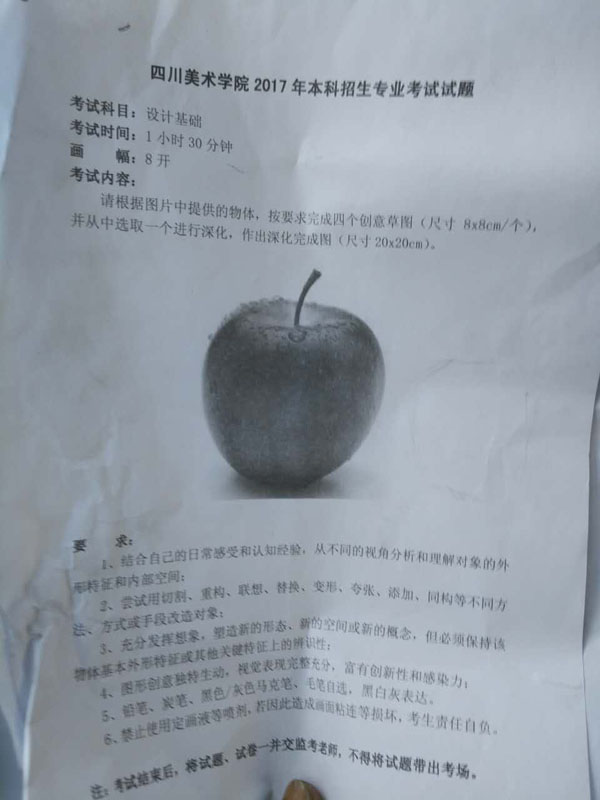 四川美术学院 2017 年本科招生专业考试试题
考试科目：设计基础
考试时间：1 小时 30 分钟
画　　幅：8 开
考试内容：
请根据图片中提供的物体，按要求完成四个创意草图（尺寸 8x8cm/个），
并从中选取一个进行深化，作出深化完成图（尺寸 20x20cm）。
要　　求：
1、结合自己的日常感受和认知经验，从不同的视角分析和理解对象的外
形特征和内部空间；
2、尝试用切割、重构、联想、替换、变形、夸张、添加、同构等不同方
法、方式或手段改造对象；
3、充分发挥想象，塑造新的形态、新的空间或新的概念，但必须保持该
物体基本外形特征或其他关键特征上的辨识性；
4、图形创意独特生动，视觉表现完整充分，富有创新性和感染力；
5、铅笔、炭笔、黑色/灰色马克笔、毛笔自选，黑白灰表达。
6、禁止使用定画液等喷剂，若因此造成画面粘连等损坏，考生责任自负。
注：考试结束后，将试题、试卷一并交监考老师，不得将试题带出考场。